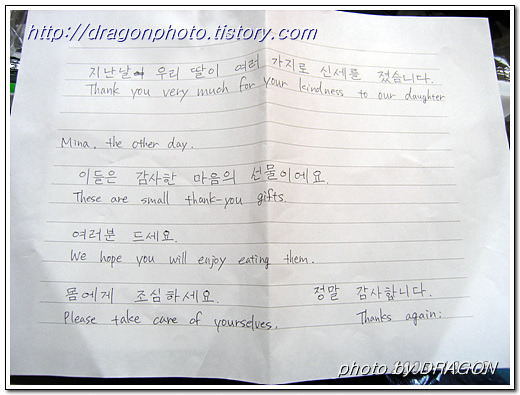 http://dragonphoto.tistory.com
지난날 우리 딸이 여러 가지로 신세를 졌습니다.
Thank you very much for your kindness to our daughter
Mina, the other day.
이들은 감사한 마음의 선물이에요.
These are small thank-you gifts.
여러분 드세요.
We hope you will enjoy eating them.
몸에게 조심하세요. 정말 감사합니다.
Please take care of yourselves. Thanks again:
photo by DRAGON